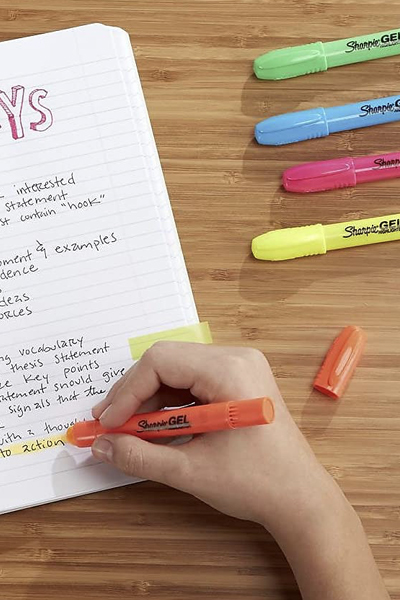 YS
interested
statement
st contain "hook"
ment & examples
dence
deas
ources
ng vocabulary
thesis statement
key points
tement should give
signals that the
with a though
to action
Sharpie GEL
Sharpie GEL
Sharpie
Sharpie GEL
HIGHLIGHTER
Sharpie GEL